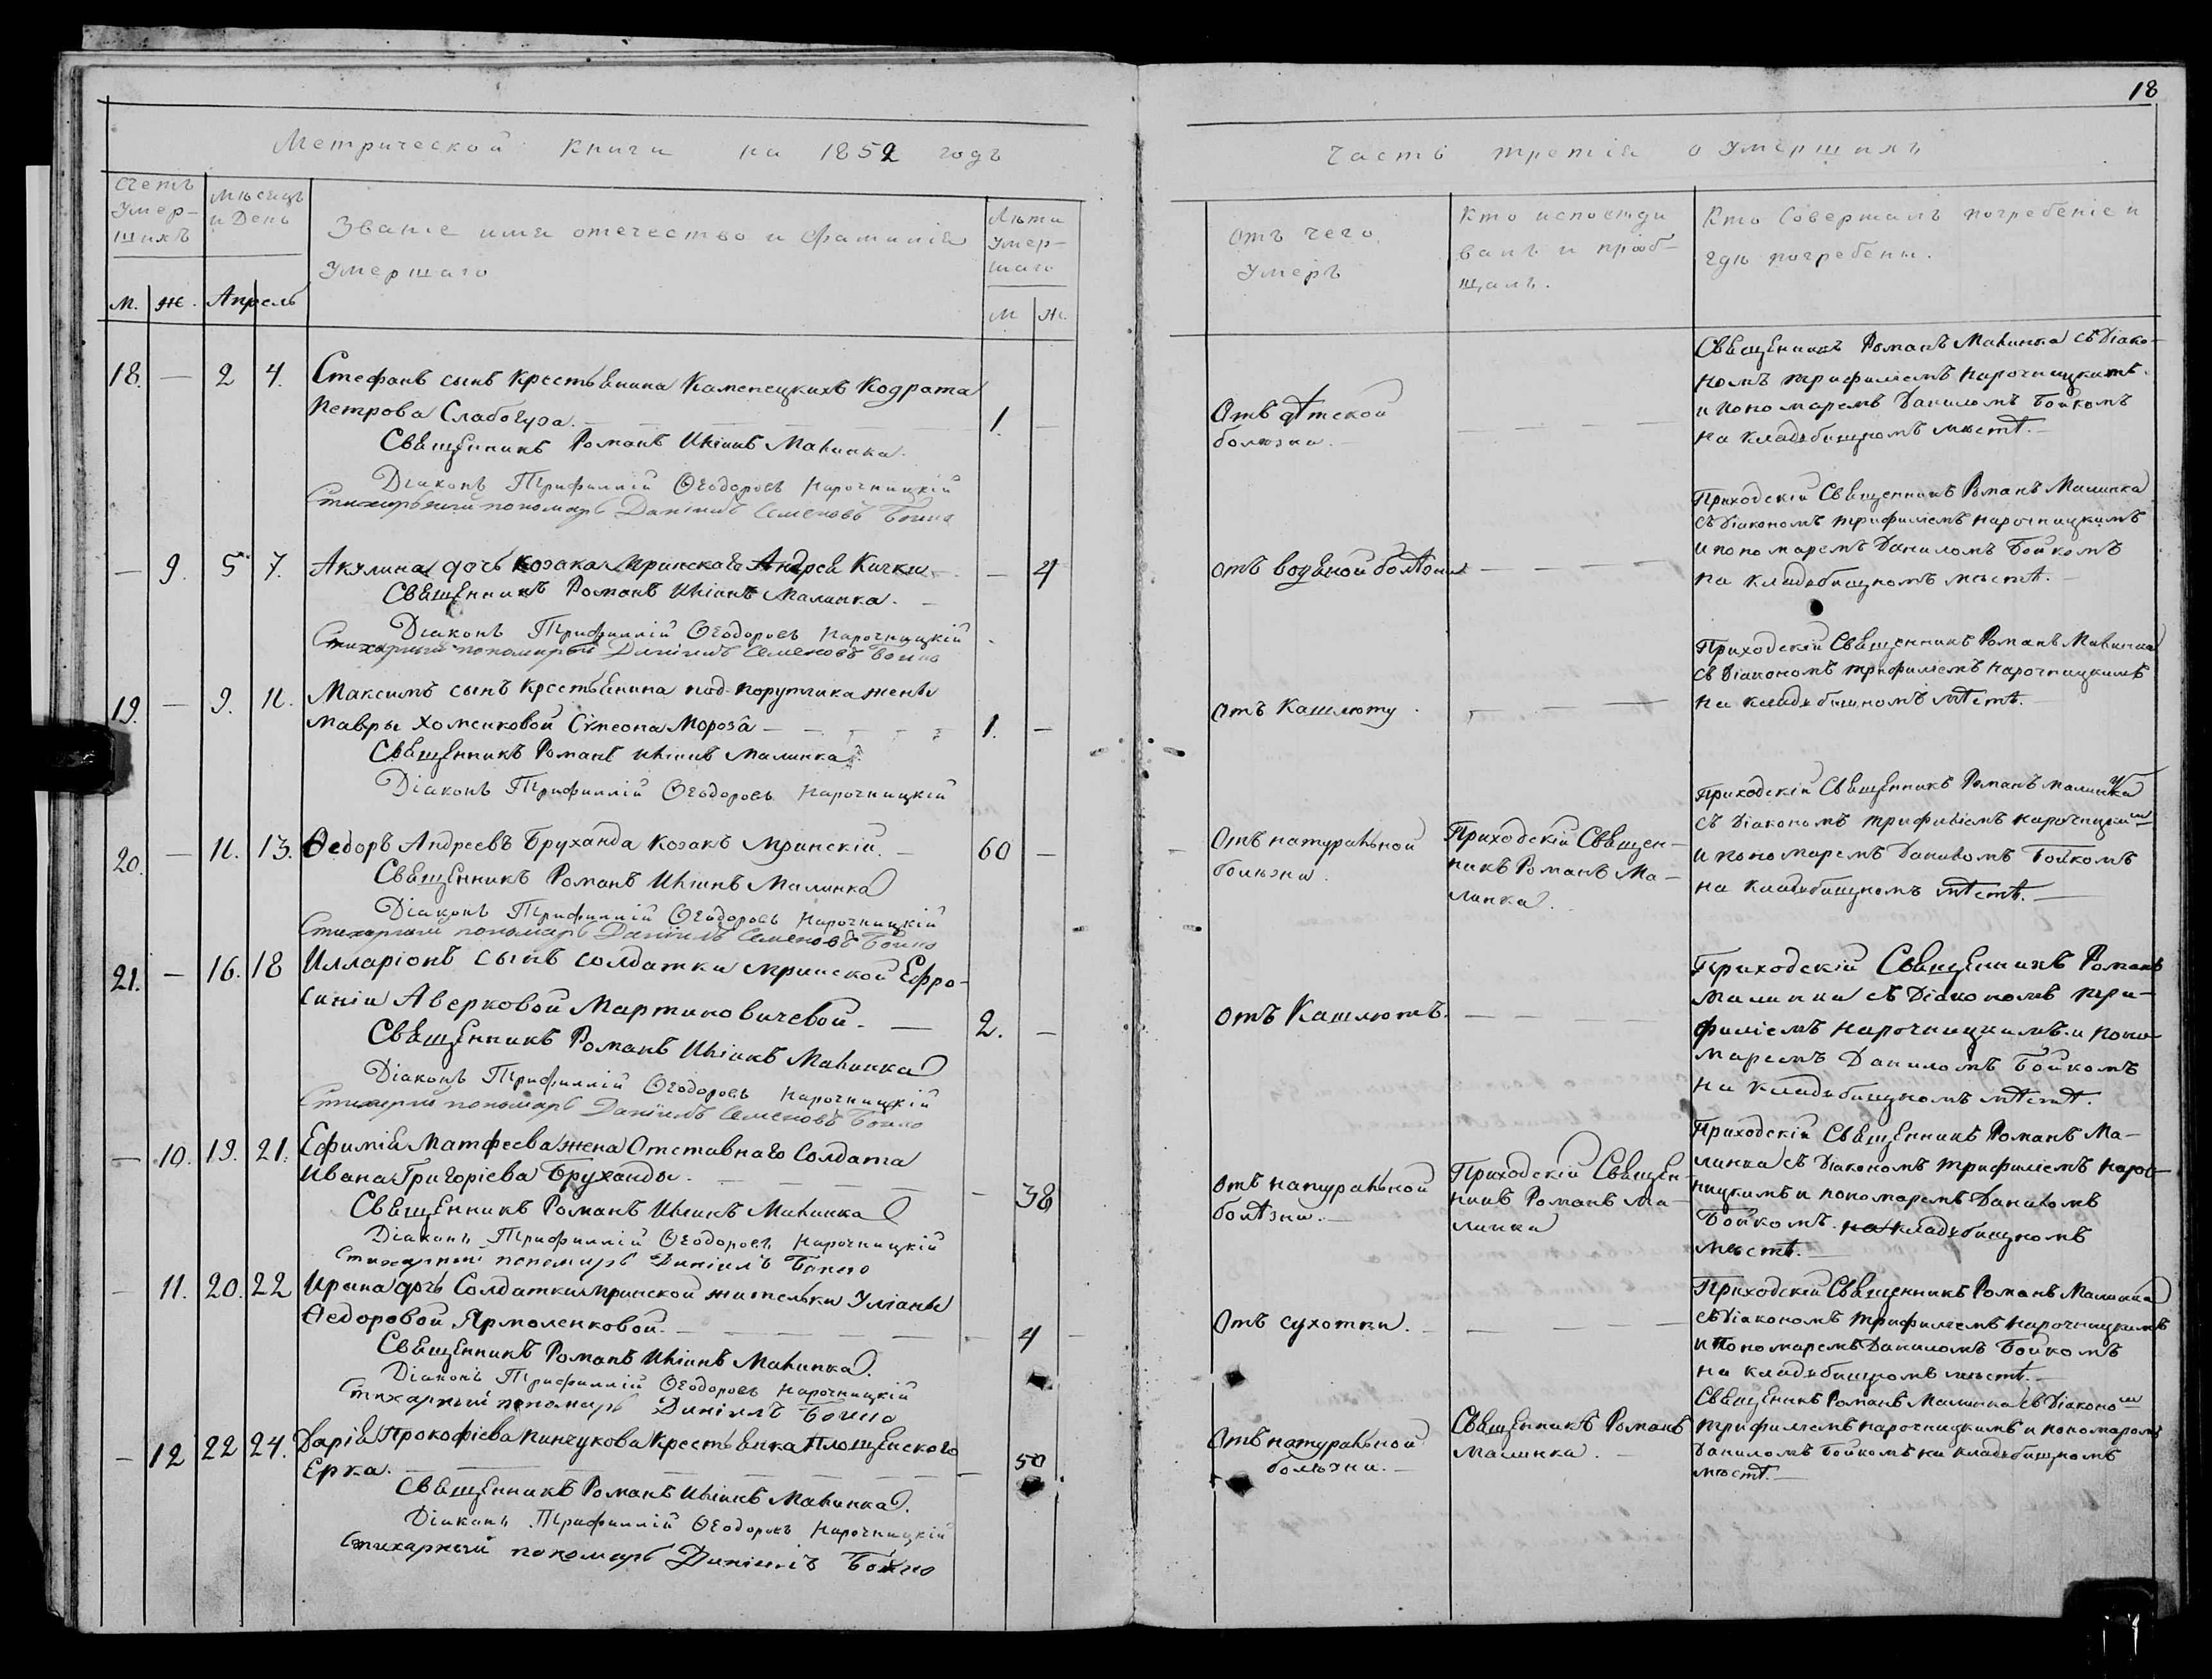 18
Метрической Книги на 1852 годъ
Часть третія о Умершихъ
Счетъ Умер-
шихъ
Мѣсяцъ
и День
Званіе имя отечество и Фамилія
Умершаго
Лѣта
Умер-
шаго
Отъ чего
Умеръ
Кто исповѣды
валъ и пріоб-
щалъ.
Кто Совершалъ погребеніе и
гдѣ погребены.
М. Ж. Апрель
М Ж.
18. — 2 4. Стефанъ сынъ Крестьянина Каменецкихъ Кодрата
Петрова Слабогуза. 1. —
Священникъ Романъ Иліинъ Малинка.
Діаконъ Трифиллій Ѳеодоровъ Нарочницкій
Стихарный пономарь Даніилъ Семеновъ Бойко
Отъ дѣтской
болѣзни.
Священникъ Романъ Малинка съ Діако-
номъ трифиліемъ Нарочницкимъ.
и пономаремъ Даниломъ Бойкомъ
на кладбищномъ мѣстѣ.
— 9. 5 7. Акулина дочь козака Мринскаго Андрея Кички — 4
Священникъ Романъ Иліинъ Малинка.
Діаконъ Трифиллій Ѳеодоровъ Нарочницкій
Стихарный пономарь Даніилъ Семеновъ Бойко
отъ водяной болѣзни
Приходскій Священникъ Романъ Малинка
съ Діакономъ трифиліемъ нарочницкимъ
и пономаремъ Даниломъ Бойкомъ
на кладбищномъ мѣстѣ.
19. — 9. 11. Максимъ сынъ крестьянина под-порутчика жены
мавры Хоменковой Сѵмеона Мороза 1. —
Священникъ Романъ Иліинъ Малинка
Діаконъ Трифиллій Ѳеодоровъ Нарочницкій
отъ Кашлюту.
Приходскій Священникъ Романъ Малинка
съ Діакономъ трифиліемъ Нарочницкимъ
на кладбищномъ мѣстѣ.
20. — 11. 13. Ѳедоръ Андреевъ Бруханда козакъ Мринскій. 60 —
Священникъ Романъ Иліинъ Малинка
Діаконъ Трифиллій Ѳеодоровъ Нарочницкій
Стихарный пономарь Даніилъ Семеновъ Бойко
Отъ натуральной
болѣзни.
Приходскій Священ-
никъ Романъ Ма-
линка.
Приходскій Священникъ Романъ малинка
съ Діакономъ трифиліемъ нарочницким
и пономаремъ Даниломъ Бойкомъ
на кладбищномъ мѣстѣ.
21. — 16. 18 Илларіонъ сынъ солдатки мринской Ефро-
синіи Аверковой Мартиновичевой. 2. —
Священникъ Романъ Иліинъ Малинка
Діаконъ Трифиллій Ѳеодоровъ Нарочницкій
Стихарный пономарь Даніилъ Семеновъ Бойко
отъ Кашлютъ.
Приходскій Священникъ Романъ
малинка съ Діакономъ три-
филіемъ нарочницкимъ и поно-
маремъ Даниломъ Бойкомъ
на кладбищномъ мѣстѣ.
— 10. 19. 21. Ефимія Матфеева жена Отставнаго Солдата
Ивана Григоріева Бруханды. — 38
Священникъ Романъ Иліинъ Малинка
Діаконъ Трифиллій Ѳеодоровъ Нарочницкій
Стихарный пономарь Даніилъ Бойко
отъ натуральной
болѣзни.
Приходскій Священ-
никъ Романъ Ма-
линка
Приходскій Священникъ Романъ Ма-
линка съ Діакономъ трифиліемъ нароч-
ницкимъ и пономаремъ Даниломъ
Бойкомъ. на кладбищномъ
мѣстѣ.
— 11. 20. 22 Ирина дочь Солдатки мринской жительки Уліаны
Ѳедоровой Ярмоленковой. — 4
Священникъ Романъ Иліинъ Малинка.
Діаконъ Трифиллій Ѳеодоровъ Нарочницкій
Стихарный пономарь Даніилъ Бойко
Отъ сухотки.
Приходскій Священникъ Романъ Малинка
съ Діакономъ трифиліемъ нарочницкимъ
и Пономаремъ Даниломъ Бойкомъ
на кладбищномъ мѣстѣ.
— 12 22 24. Дарія Прокофіева Пинчукова Крестьянка Площенского
Ерка. — 50
Священникъ Романъ Иліинъ Малинка.
Діаконъ Трифиллій Ѳеодоровъ Нарочницкій
Стихарный пономарь Даніилъ Бойко
Отъ натуральной
болѣзни.
Священникъ Романъ
Малинка.
Священникъ Романъ Малинка съ Діаконом
трифиліемъ нарочницкимъ и пономаромъ
Даниломъ Бойкомъ на кладбищномъ
мѣстѣ.